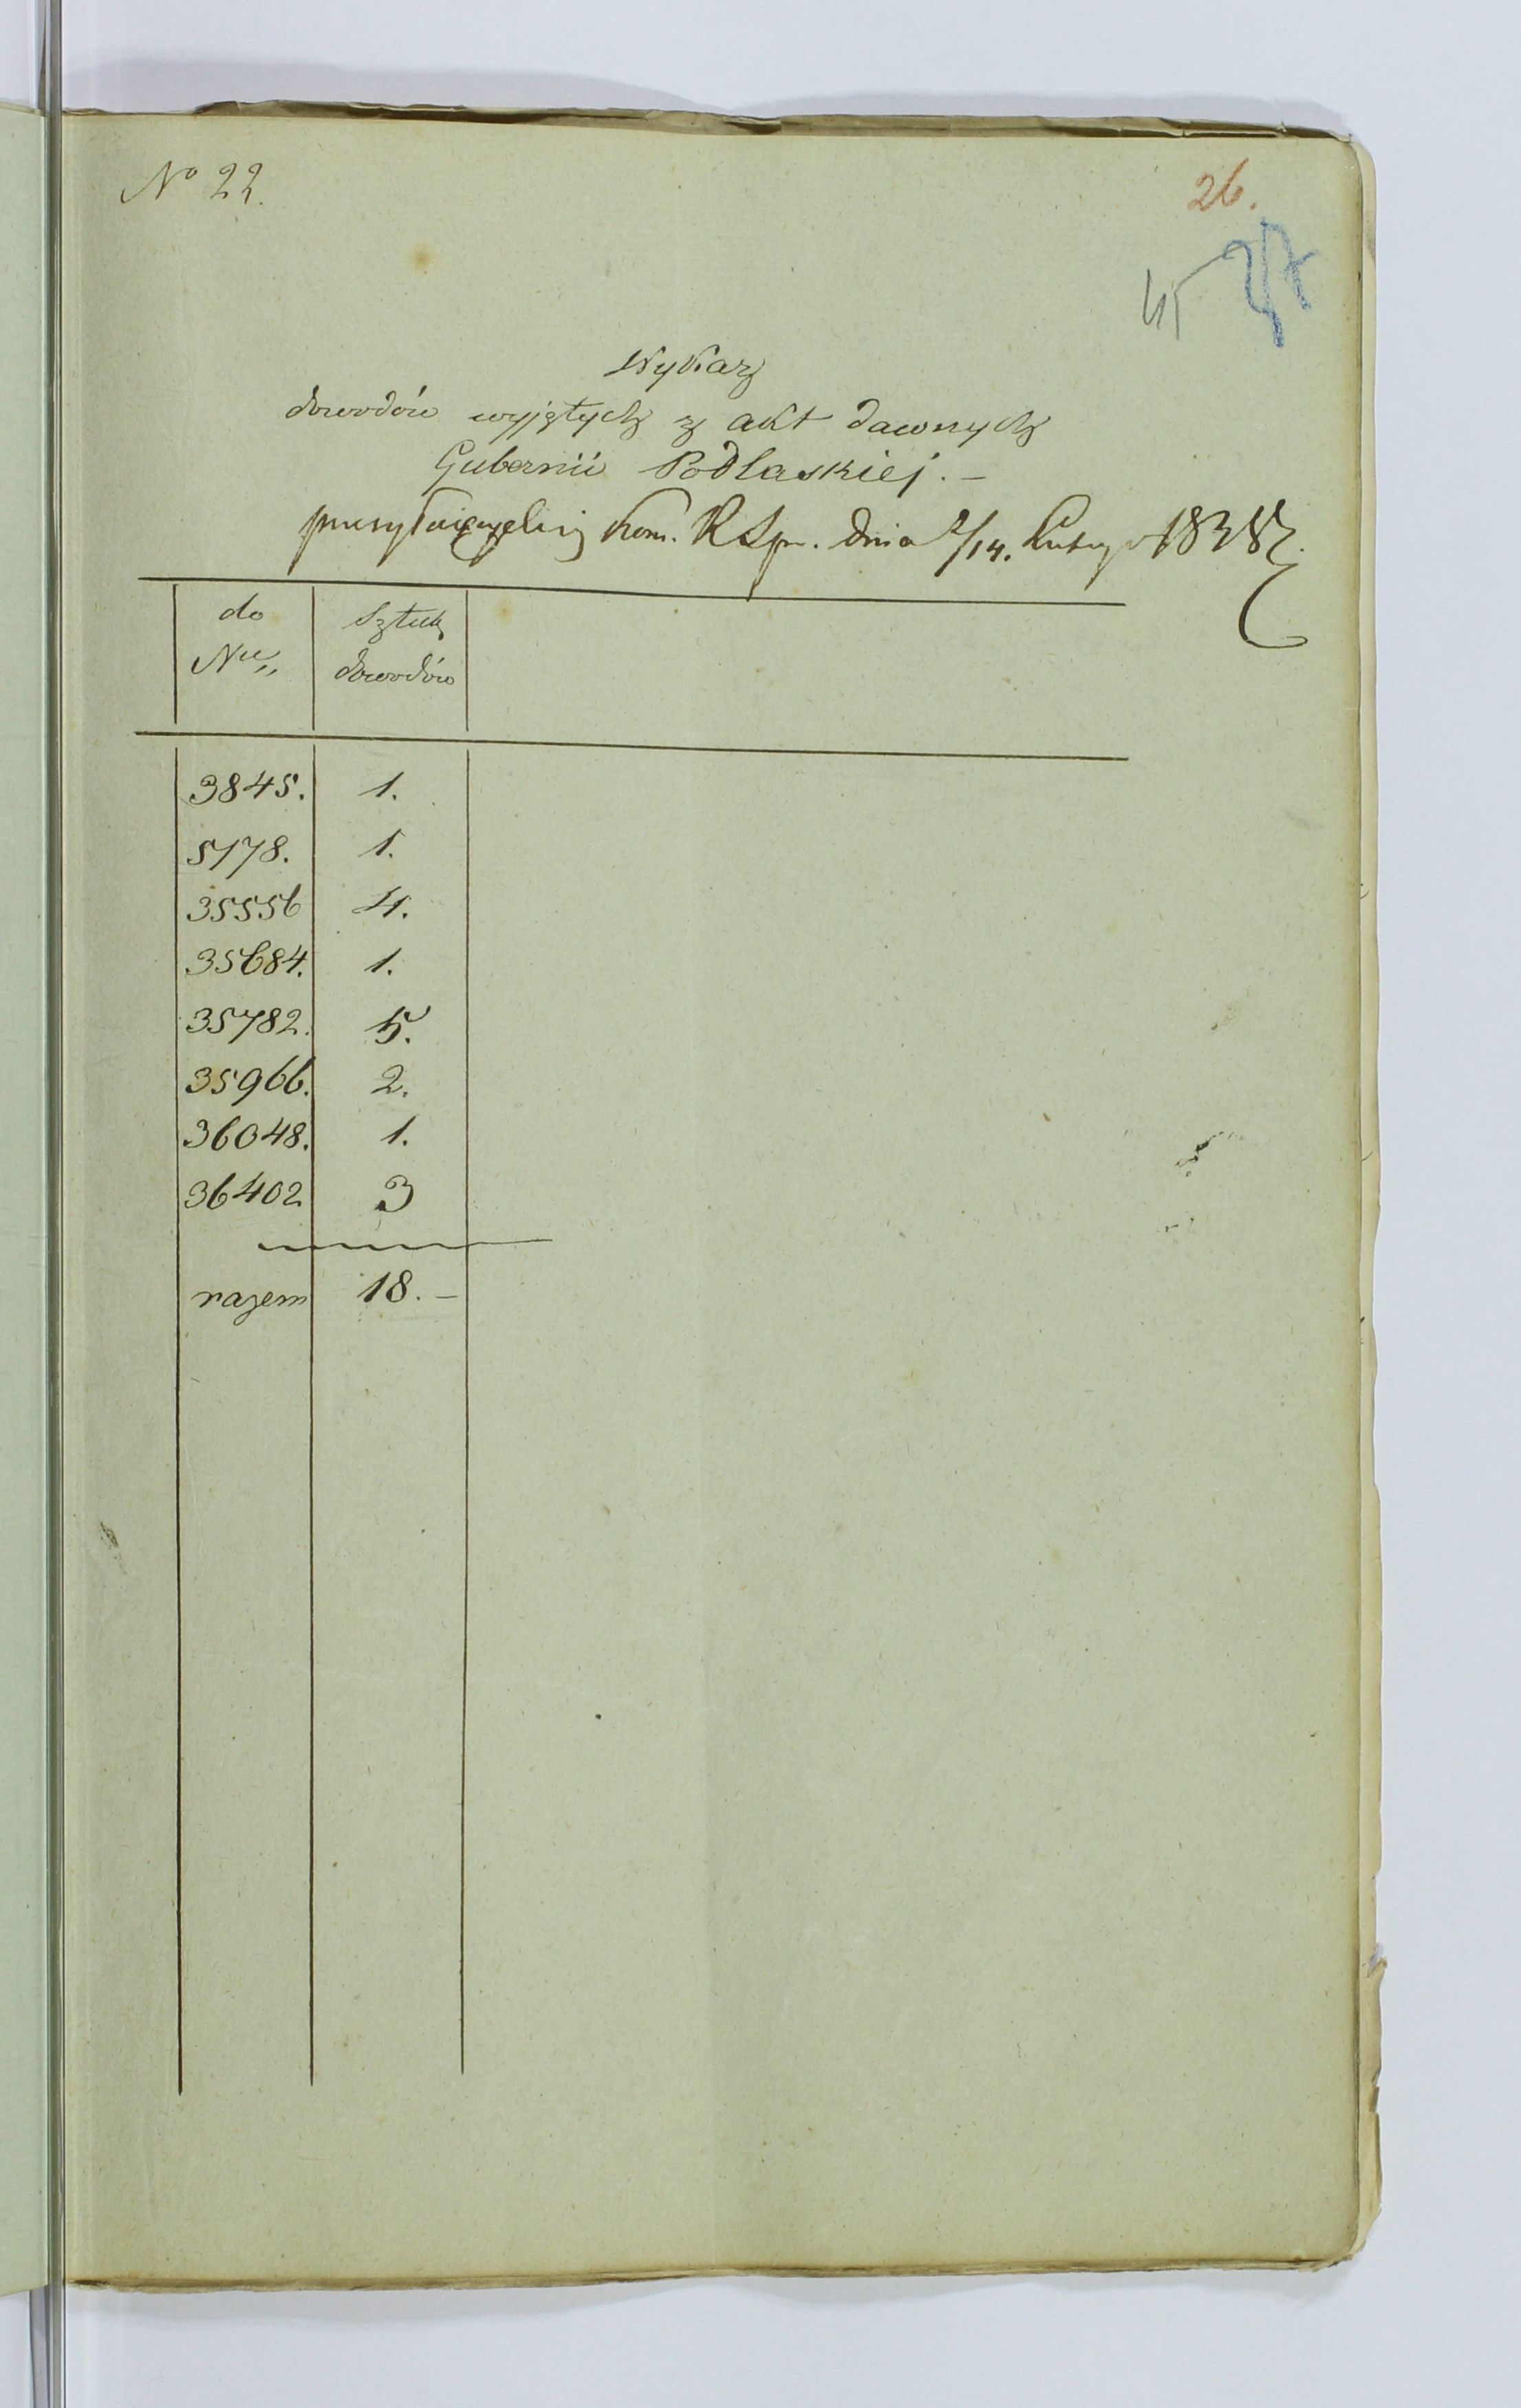 No 22.
26.
45
27
Wykaz
dowodów wyjętych z akt dawnych
Gubernii Podlaskiej. –
Kom. R Spr. dnia 2/14. Lutego 1838 r.
do Sztuk
Nu,, dowodów
3845. 1.
5178. 1.
35556 4.
35684. 1.
35782. 5.
35966. 2.
36048. 1.
36402 3
razem 18. –